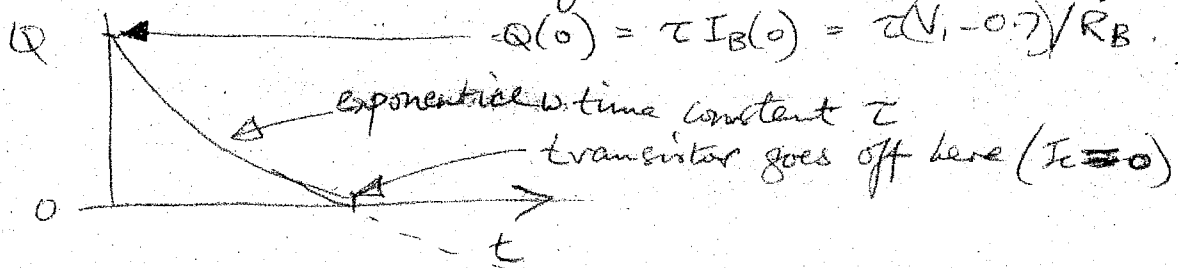 Q
Q(0) = τ I_B(0) = τ(V₁ - 0.7)/R_B.
exponential w. time constant τ
transistor goes off here (I_C = 0)
0
t